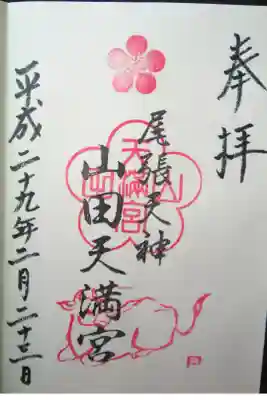 奉拝
尾張天神
山田天満宮
平成二十九年二月二十三日
山田
天満宮